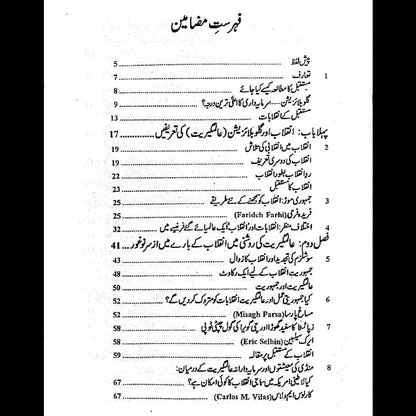 فہرستِ مضامین
پیش لفظ 5
1 تعارف 7
مستقبل کا مطالعہ کیسے کیا جائے 8
گلوبلائزیشن.....سرمایہ داری کا اعلیٰ ترین درجہ؟ 9
مستقبل کے انقلابات 13
پہلا باب: انقلاب اور گلوبلائزیشن (عالمگیریت) کی تعریفیں 17
2 انقلاب میں انقلابی کی تلاش 19
انقلاب کی دوسری تعریف 19
ردِ انقلاب بطور انقلاب 22
انقلاب کا مستقبل 23
3 جمہوری موڑ: انقلاب کو سمجھنے کے نئے طریقے 25
فریدہ فرحی (Farideh Farhi) 25
4 اختلافِ منظر: انقلابات اور انقلاب؛ ایک عالمیائے گئے فریم میں 32
فصل دوم: عالمگیریت کی روشنی میں انقلاب کے بارے میں از سرِ نو غور 41
5 سوشلزم کی تجدید اور انقلاب کا زوال 43
جمہوریت انقلاب کے لیے ایک رکاوٹ 48
عالمگیریت اور جمہوریت 50
6 کیا جمہوریتی عمل اور عالمگیریت انقلابات کو متروک کر دیں گے؟ 52
مساغ پارسا (Misagh Parsa) 52
7 زپاٹسٹا کا سفید گھوڑا اور چی گویرا کی گول چپٹی ٹوپی
ایرک سیلبین (Eric Selbin) 58
انقلاب کے مستقبل پر مقالہ 59
8 منڈی کی معیشتوں اور سرمایہ دارانہ عالمگیریت کے درمیان:
کیا لاطینی امریکہ میں سماجی انقلاب کا کوئی امکان ہے؟ 67
کارلوس ایم ولاس (Carlos M. Vilas) 67